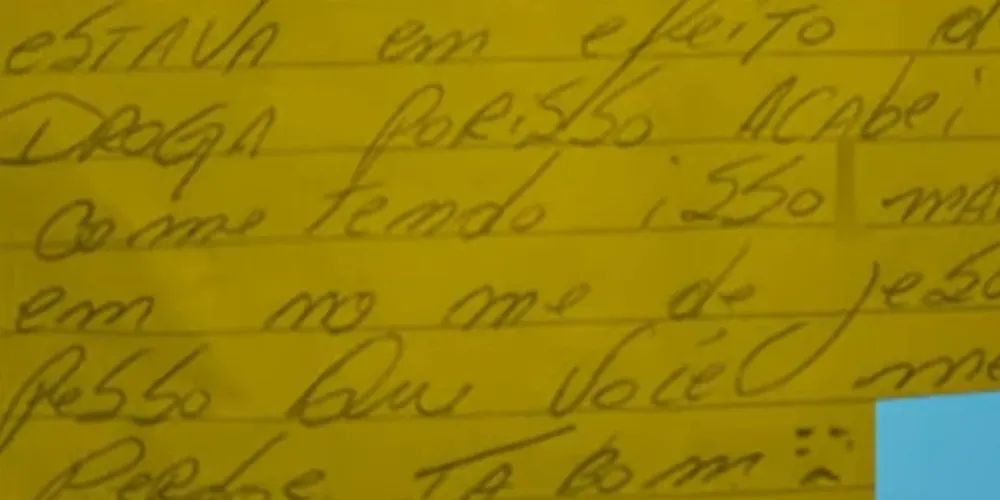 eSTAVA em efeito d
DROGA PORiSSo ACAbei
Come Tendo iSSo mA
em no me de jeso
PeSSo Que Você me
Perdoe TA Bom